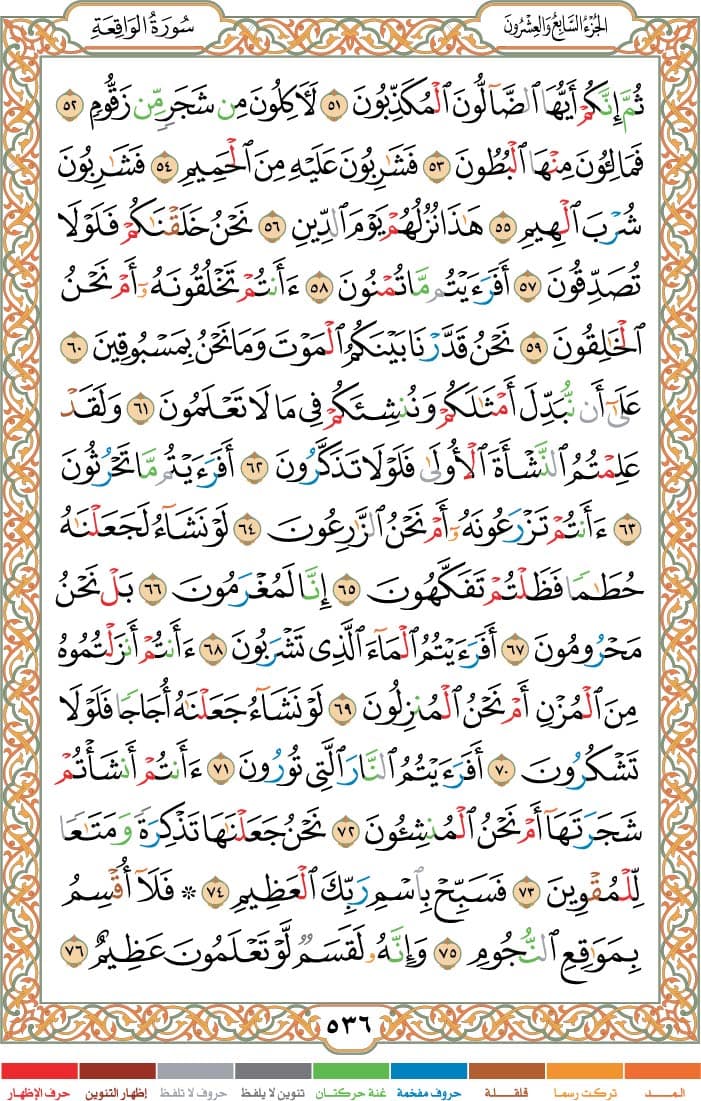 الجزء السابع والعشرون
سورة الواقعة
ثُمَّ إِنَّكُمْ أَيُّهَا ٱلضَّآلُّونَ ٱلْمُكَذِّبُونَ ٥١ لَأٓكِلُونَ مِن شَجَرٍ مِّن زَقُّومٍ ٥٢
فَمَالِـُٔونَ مِنْهَا ٱلْبُطُونَ ٥٣ فَشَٰرِبُونَ عَلَيْهِ مِنَ ٱلْحَمِيمِ ٥٤ فَشَٰرِبُونَ
شُرْبَ ٱلْهِيمِ ٥٥ هَٰذَا نُزُلُهُمْ يَوْمَ ٱلدِّينِ ٥٦ نَحْنُ خَلَقْنَٰكُمْ فَلَوْلَا
تُصَدِّقُونَ ٥٧ أَفَرَءَيْتُم مَّا تُمْنُونَ ٥٨ ءَأَنتُمْ تَخْلُقُونَهُۥٓ أَمْ نَحْنُ
ٱلْخَٰلِقُونَ ٥٩ نَحْنُ قَدَّرْنَا بَيْنَكُمُ ٱلْمَوْتَ وَمَا نَحْنُ بِمَسْبُوقِينَ ٦٠
عَلَىٰٓ أَن نُّبَدِّلَ أَمْثَٰلَكُمْ وَنُنشِئَكُمْ فِى مَا لَا تَعْلَمُونَ ٦١ وَلَقَدْ
عَلِمْتُمُ ٱلنَّشْأَةَ ٱلْأُولَىٰ فَلَوْلَا تَذَكَّرُونَ ٦٢ أَفَرَءَيْتُم مَّا تَحْرُثُونَ
٦٣ ءَأَنتُمْ تَزْرَعُونَهُۥٓ أَمْ نَحْنُ ٱلزَّٰرِعُونَ ٦٤ لَوْ نَشَآءُ لَجَعَلْنَٰهُ
حُطَٰمًا فَظَلْتُمْ تَفَكَّهُونَ ٦٥ إِنَّا لَمُغْرَمُونَ ٦٦ بَلْ نَحْنُ
مَحْرُومُونَ ٦٧ أَفَرَءَيْتُمُ ٱلْمَآءَ ٱلَّذِى تَشْرَبُونَ ٦٨ ءَأَنتُمْ أَنزَلْتُمُوهُ
مِنَ ٱلْمُزْنِ أَمْ نَحْنُ ٱلْمُنزِلُونَ ٦٩ لَوْ نَشَآءُ جَعَلْنَٰهُ أُجَاجًا فَلَوْلَا
تَشْكُرُونَ ٧٠ أَفَرَءَيْتُمُ ٱلنَّارَ ٱلَّتِى تُورُونَ ٧١ ءَأَنتُمْ أَنشَأْتُمْ
شَجَرَتَهَآ أَمْ نَحْنُ ٱلْمُنشِـُٔونَ ٧٢ نَحْنُ جَعَلْنَٰهَا تَذْكِرَةً وَمَتَٰعًا
لِّلْمُقْوِينَ ٧٣ فَسَبِّحْ بِٱسْمِ رَبِّكَ ٱلْعَظِيمِ ٧٤ * فَلَآ أُقْسِمُ
بِمَوَٰقِعِ ٱلنُّجُومِ ٧٥ وَإِنَّهُۥ لَقَسَمٌ لَّوْ تَعْلَمُونَ عَظِيمٌ ٧٦
٥٣٦
المــد تركت رسما قلقلة حروف مفخمة غنة حركتان تنوين لا يلفظ حروف لا تلفظ إظهار التنوين حرف الإظهار